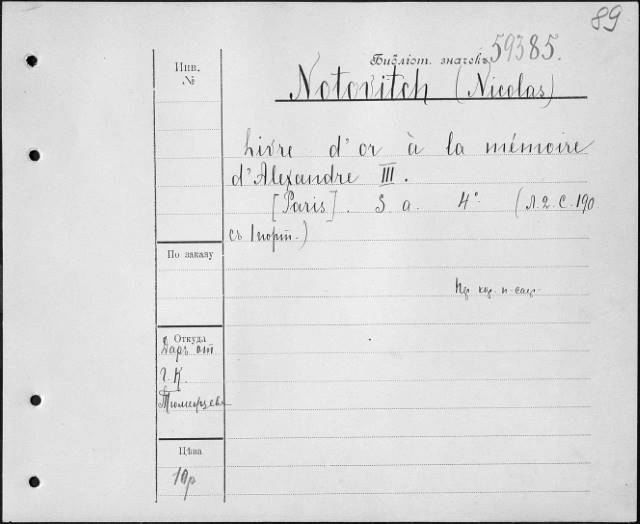 89
Библіот. значекъ 59385.
Инв.
№
Notovitch (Nicolas)
Livre d'or à la mémoire
d'Alexandre III.
[Paris]. S. a. 4° (Л.2.С.190
съ 1 порт.)
По заказу
Откуда
Даръ от
Г. К.
Цѣна
10р